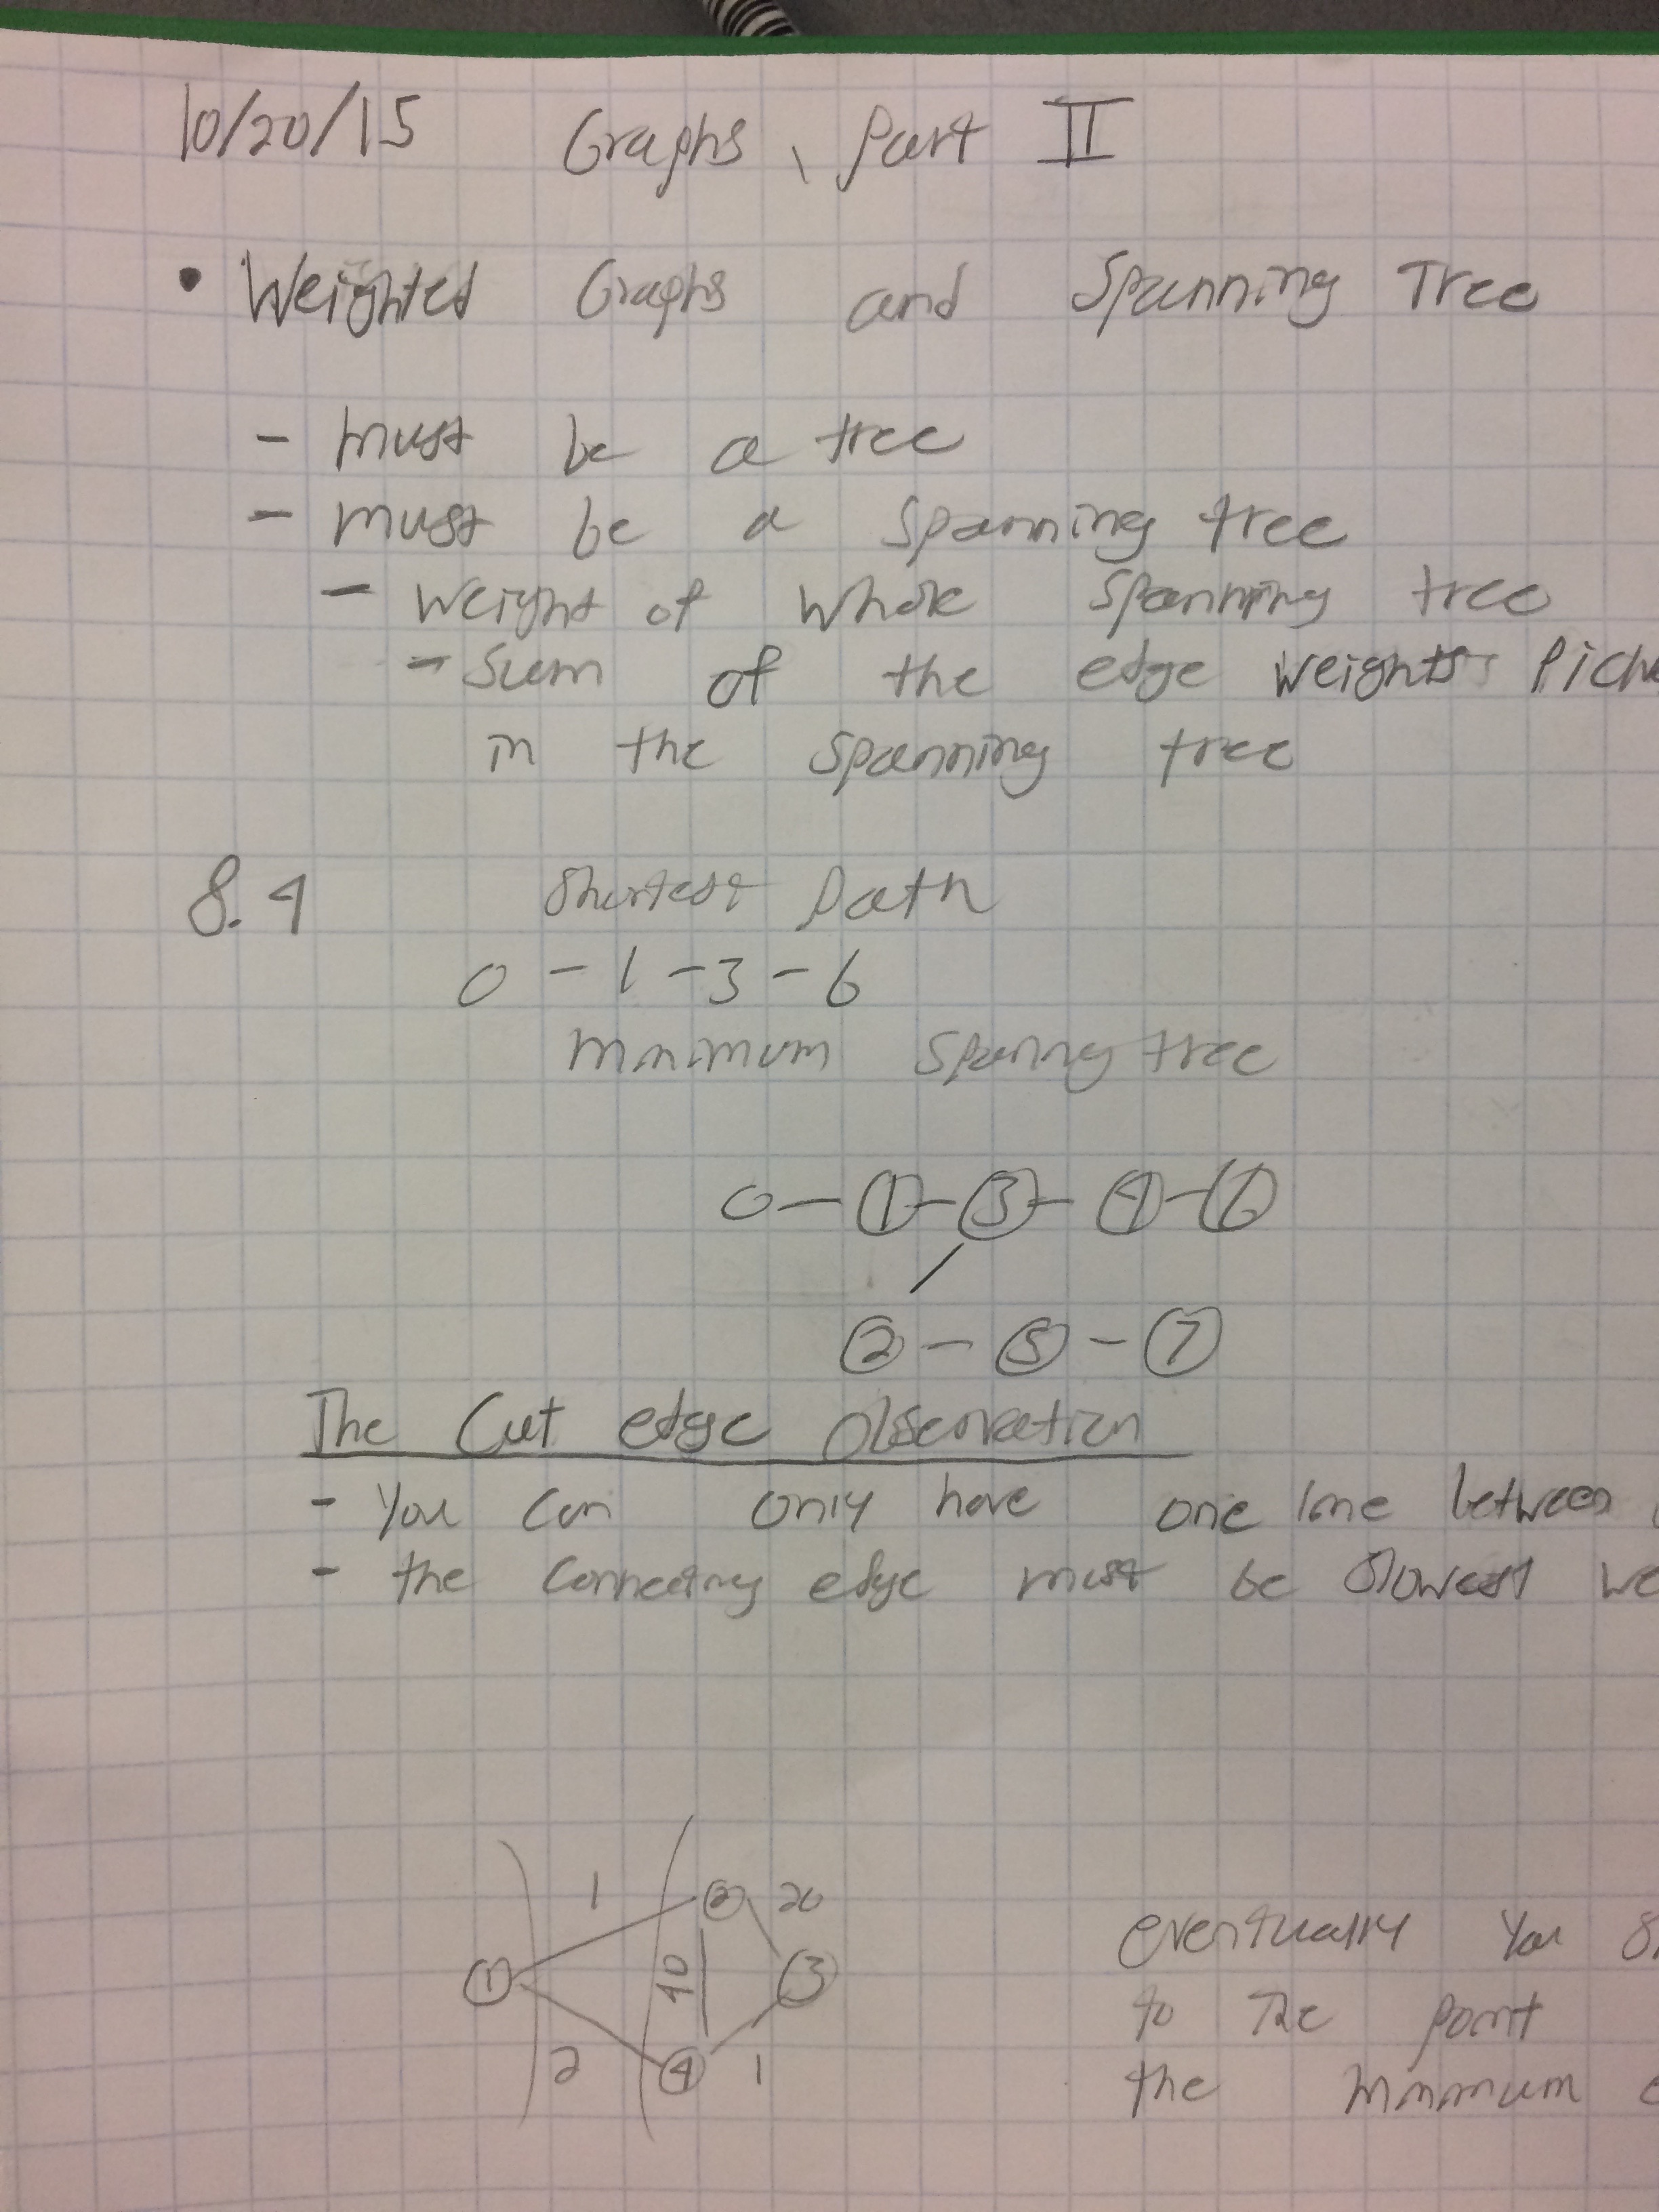 10/20/15 Graphs, Part II
• Weighted Graphs and Spanning Tree
- must be a tree
- must be a spanning tree
- weight of whole spanning tree
- Sum of the edge weights
in the spanning tree
8.4 Shortest Path
0 - 1 - 3 - 6
minimum spanning tree
0 - 1 - 3 - 4 - 6
2 - 5 - 7
The Cut edge Observation
- You can only have one line between
- the connecting edge must be
1 2 20
1 10 3
2 4 1
eventually you
to the point
the minimum